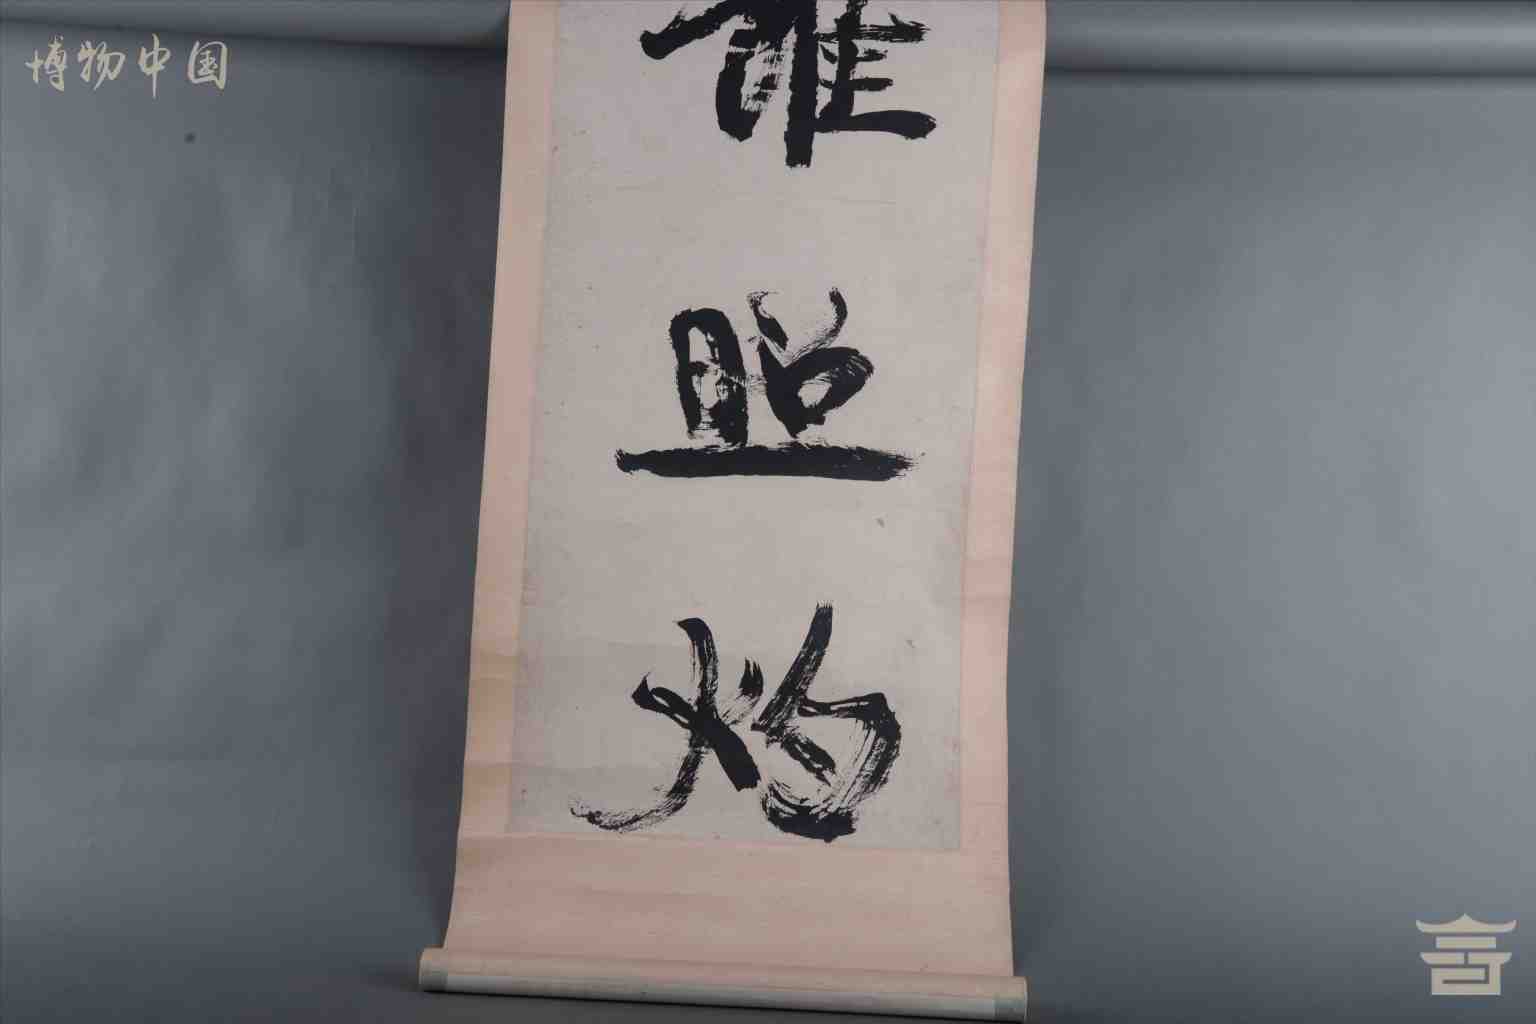 博物中国
照
灼